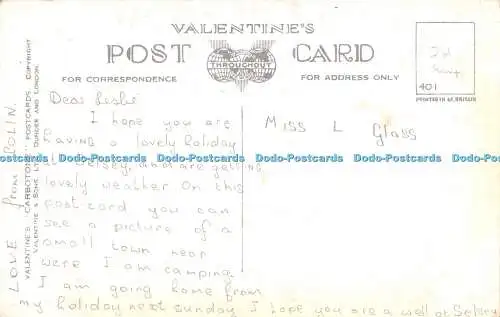 VALENTINE'S
POST CARD
THROUGHOUT
FOR CORRESPONDENCE
FOR ADDRESS ONLY
401
PRINTED IN GT. BRITAIN
Dear Leslie
I hope you are
having a lovely holiday
at Selsey, and are getting
lovely weather. On this
postcard you can
see a picture of a
small town near
were I am camping
I am going home from
my holiday next sunday I hope you are a well at Selsey
LOVE from COLIN.
Miss L Glass
VALENTINE'S "CARBOTONE" POSTCARDS, COPYRIGHT
VALENTINE & SONS, LTD., DUNDEE AND LONDON.
Dodo-Postcards Dodo-Postcards Dodo-Postcards Dodo-Postcards Dodo-Postcards